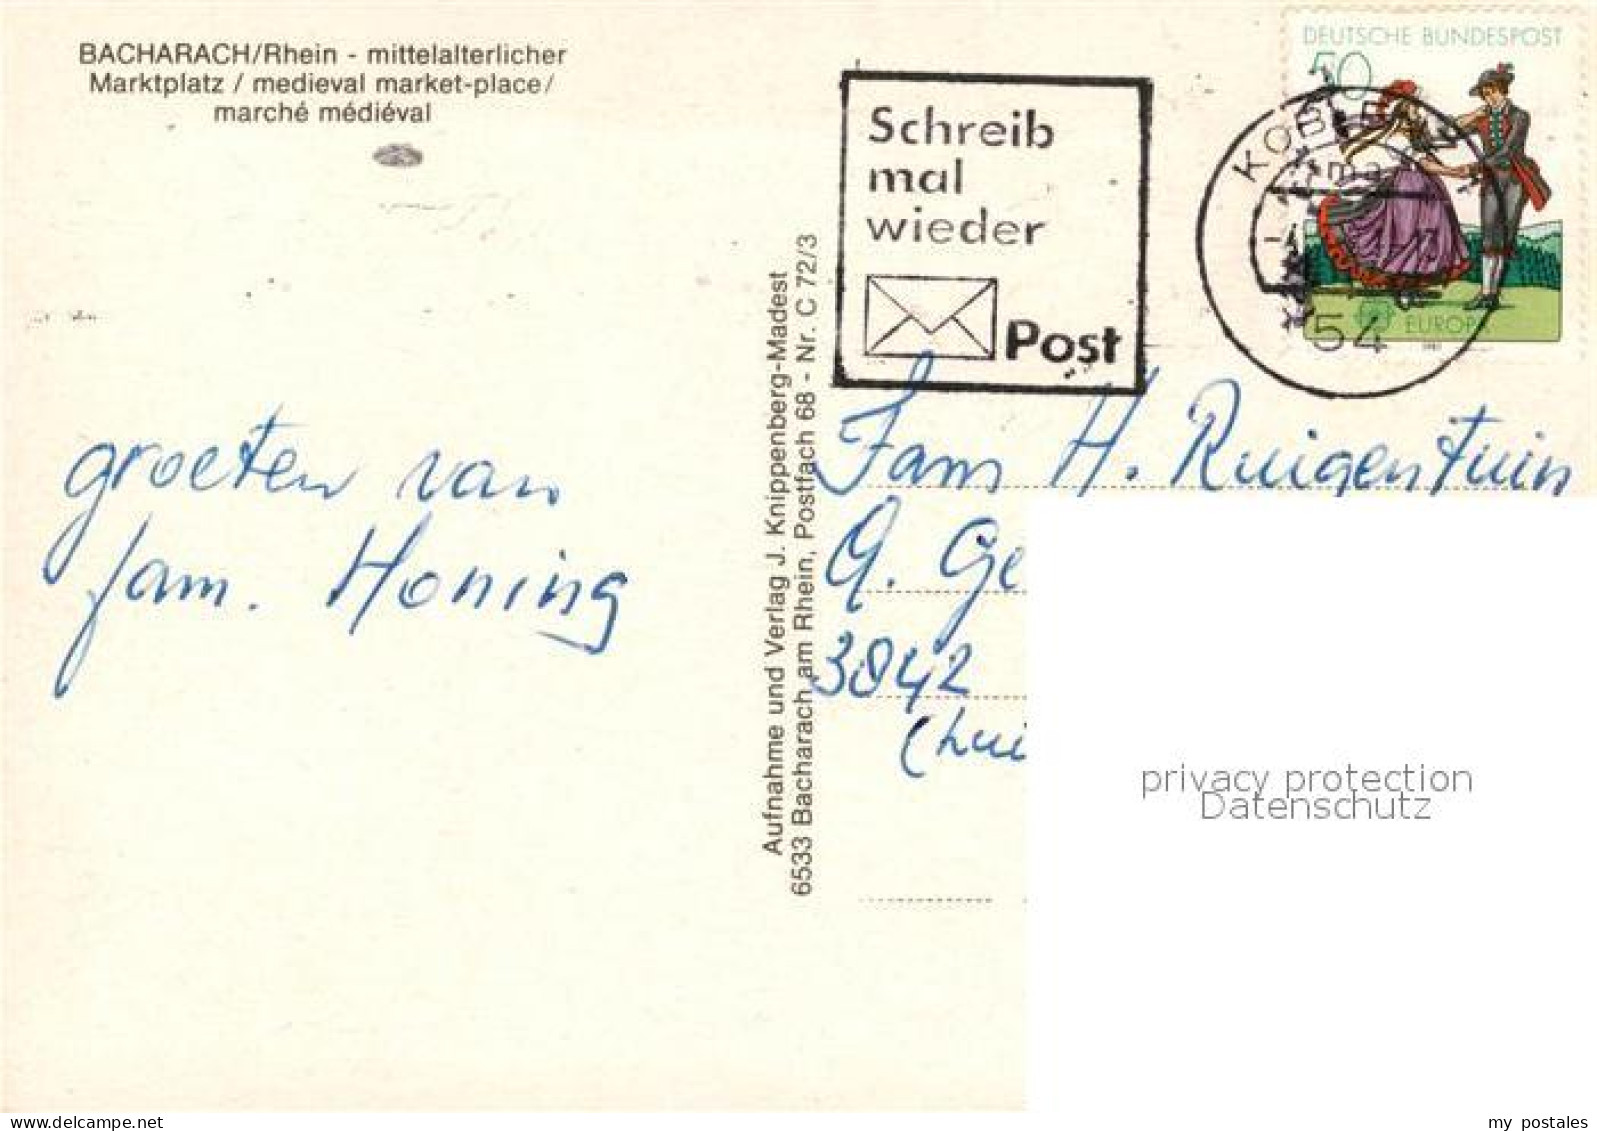 BACHARACH/Rhein - mittelalterlicher
Marktplatz / medieval market-place/
marché médiéval
groeten van
fam. Honing
Aufnahme und Verlag J. Knippenberg-Madest
6533 Bacharach am Rhein, Postfach 68 - Nr. C 72/3
Schreib
mal
wieder
Post
DEUTSCHE BUNDESPOST
50
EUROPA
1981
KOBLENZ 1
54
Fam H. Ruigentuin
A. Ge
3842
(Lui
privacy protection
Datenschutz
my_postales